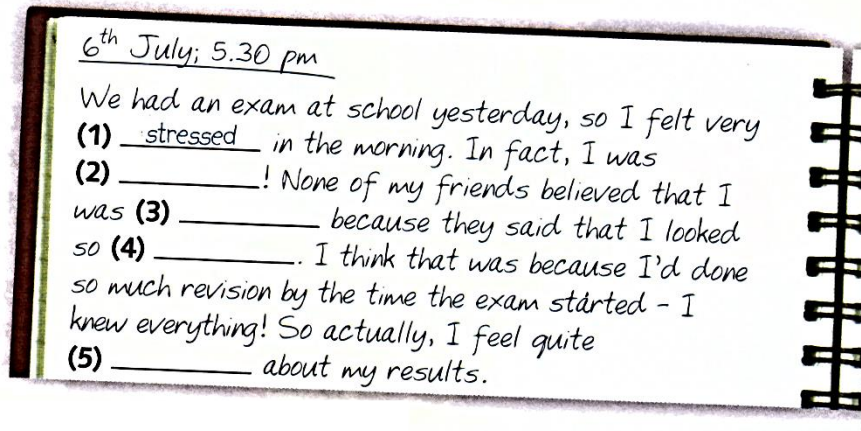 6th July; 5.30 pm
We had an exam at school yesterday, so I felt very
(1) stressed in the morning. In fact, I was
(2) __________! None of my friends believed that I
was (3) __________ because they said that I looked
so (4) __________. I think that was because I'd done
so much revision by the time the exam started – I
knew everything! So actually, I feel quite
(5) __________ about my results.